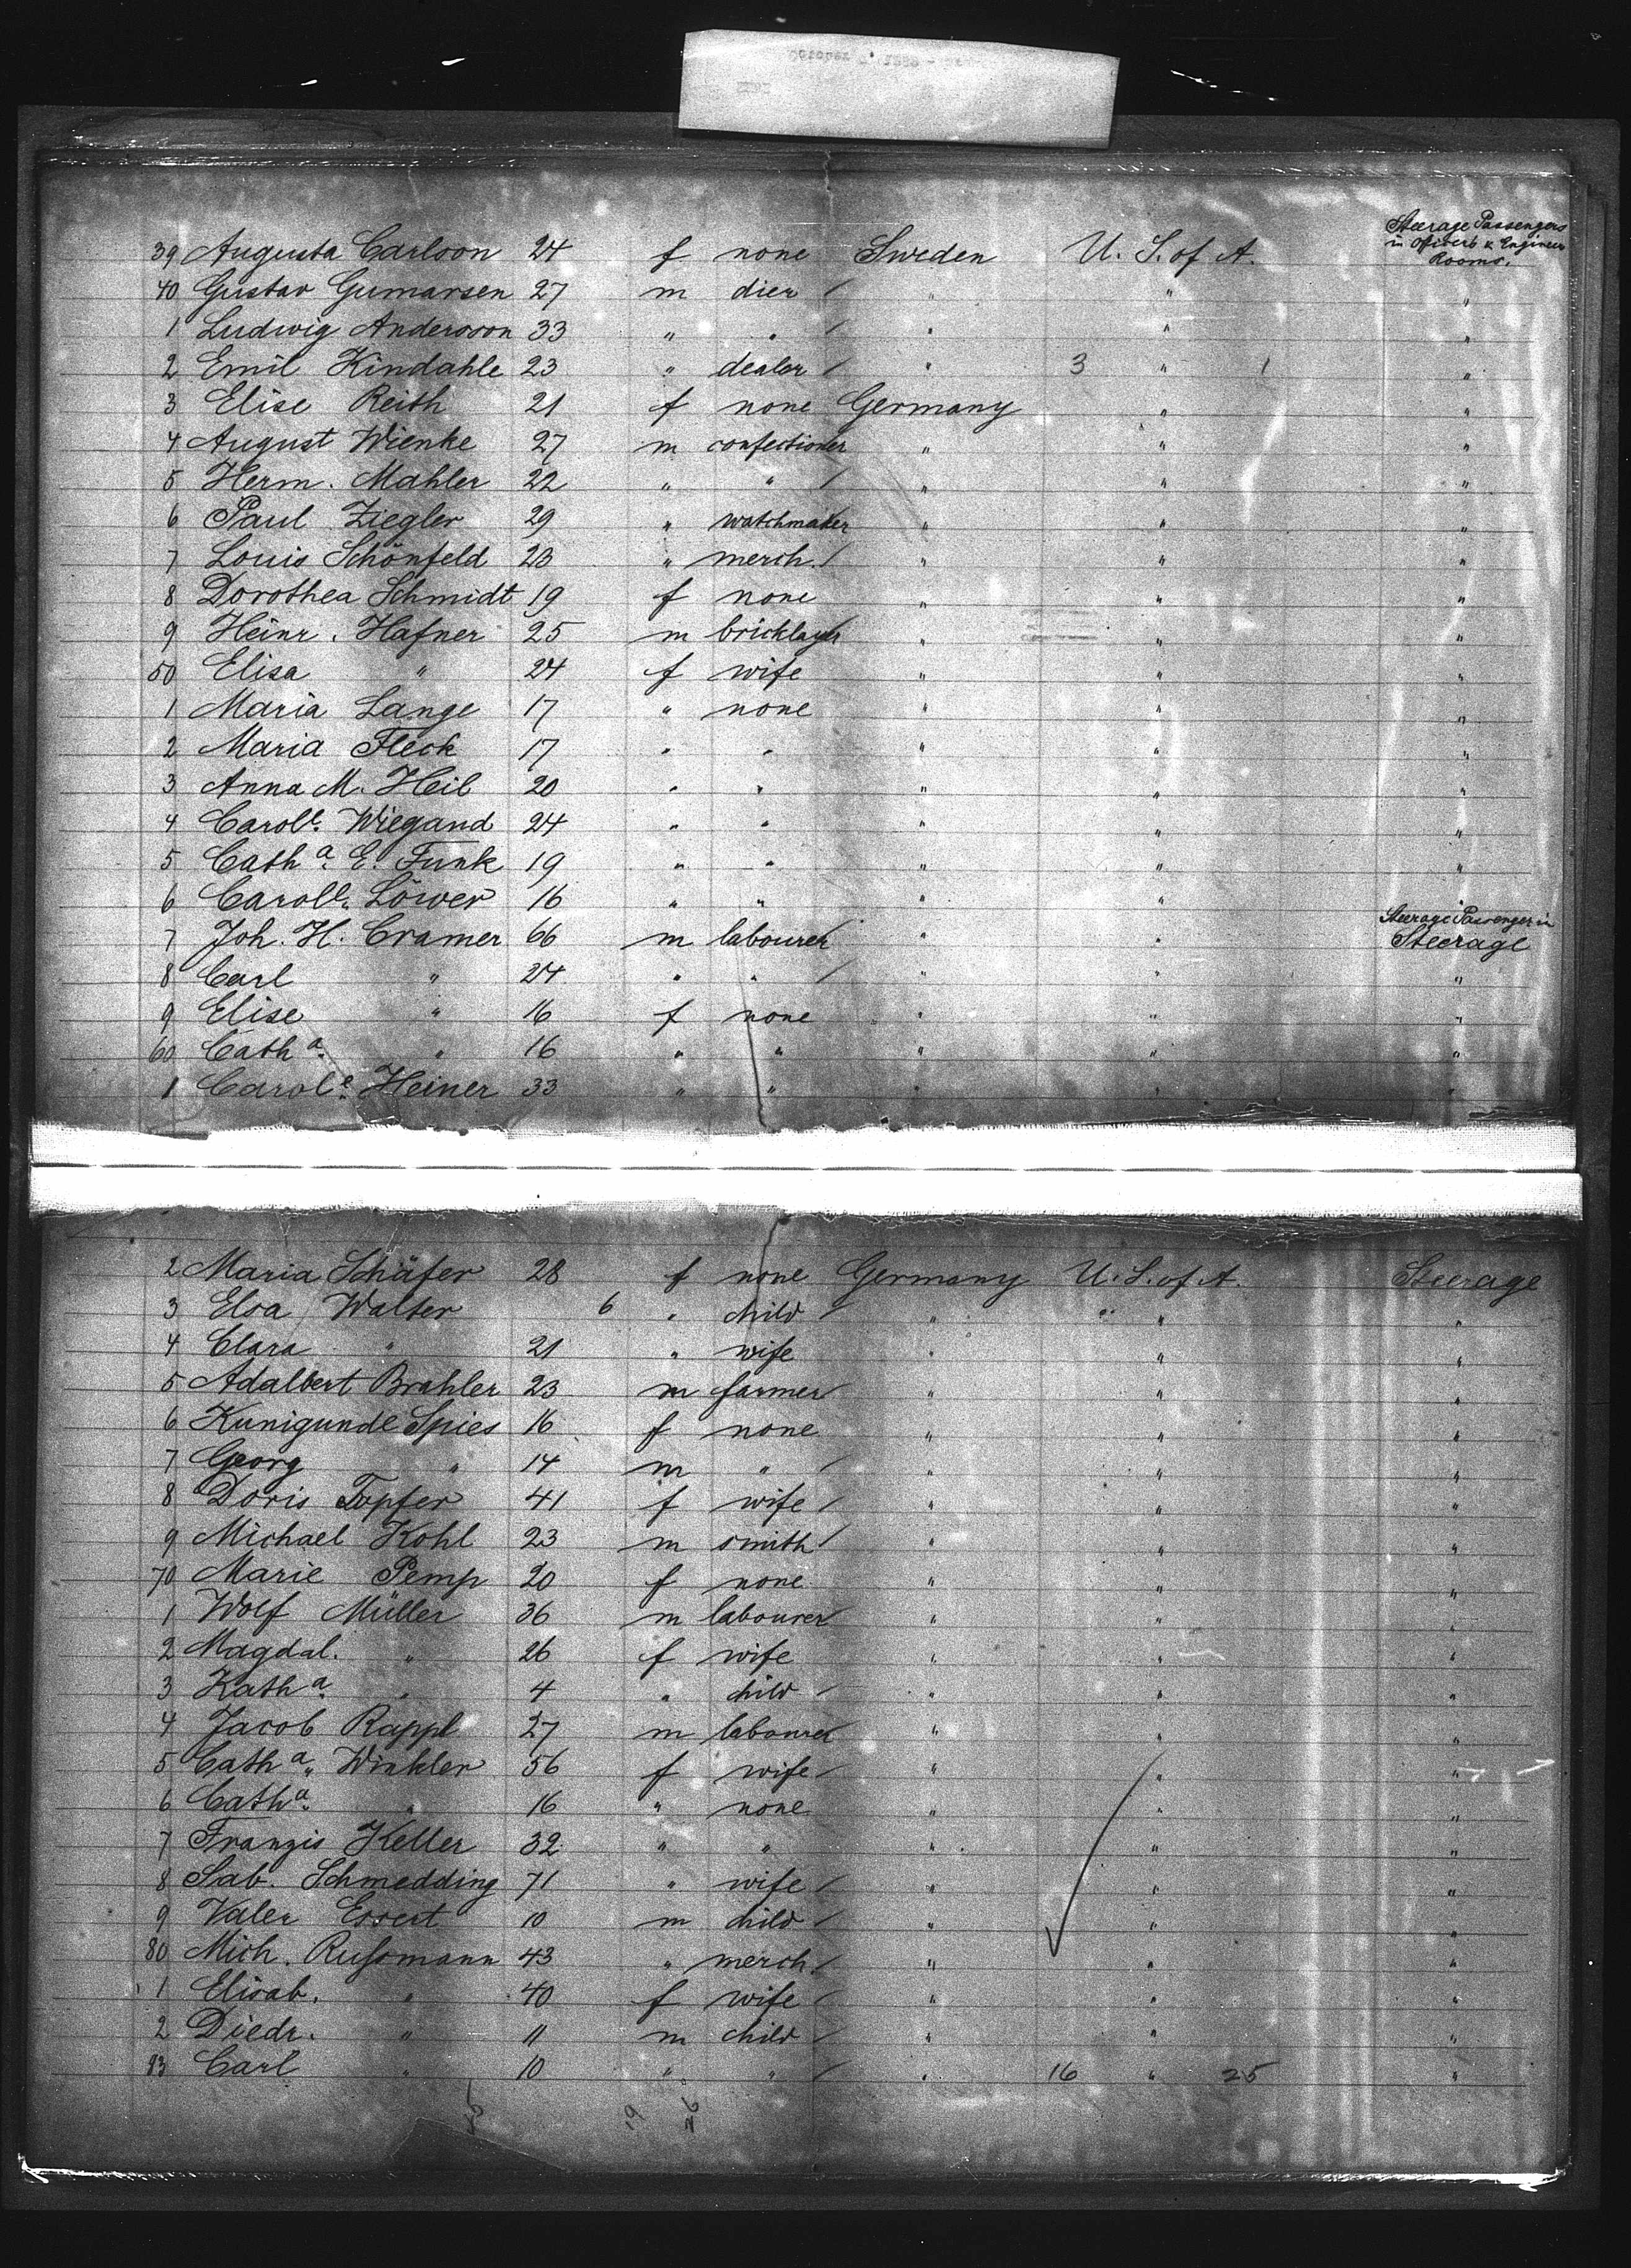 Steerage Passengers
in Officers & Engineer
Rooms.
39 Augusta Carlson 24 f none Sweden U. S. of A.
40 Gustav Gumarsen 27 m dier " " "
1 Ludwig Andersson 33 " " " " "
2 Emil Kindahle 23 " dealer " 3 " 1 "
3 Elise Reith 21 f none Germany " "
4 August Wienke 27 m confectioner " " "
5 Herm. Mahler 22 " " " " "
6 Paul Ziegler 29 " watchmaker " " "
7 Louis Schönfeld 23 " merch. " " "
8 Dorothea Schmidt 19 f none " " "
9 Heinr. Hafner 25 m bricklayer " " "
50 Elisa " 24 f wife " " "
1 Maria Lange 17 " none " " "
2 Maria Fleck 17 " " " " "
3 Anna M. Heil 20 " " " " "
4 Carole. Wiegand 24 " " " " "
5 Catha. E. Funk 19 " " " " "
6 Carole. Löwer 16 " " " " "
Steerage Passenger in
7 Joh. H. Cramer 66 m labourer " " Steerage
8 Carl " 24 " " " " "
9 Elise " 16 f none " " "
60 Catha. " 16 " " " " "
1 Carole. Heiner 33 " " " " "
2 Maria Schäfer 28 f none Germany U. S. of A. Steerage
3 Elsa Walter 6 " child " " "
4 Clara " 21 " wife " " "
5 Adalbert Brahler 23 m farmer " " "
6 Kunigunde Spies 16 f none " " "
7 Georg " 14 m " " " "
8 Doris Topfer 41 f wife " " "
9 Michael Kohl 23 m smith " " "
70 Marie Pemp 20 f none " " "
1 Wolf Müller 36 m labourer " " "
2 Magdal. " 26 f wife " " "
3 Katha. " 4 " child " " "
4 Jacob Rappl 27 m labourer " " "
5 Catha. Winkler 56 f wife " " "
6 Catha. " 16 " none " " "
7 Franzis Keller 32 " " " " "
8 Sab. Schmedding 71 " wife " " "
9 Valer Essert 10 m child " " "
80 Mich. Rußmann 43 " merch. " " "
1 Elisab. " 40 f wife " " "
2 Diedr. " 11 m child " " "
83 Carl " 10 " " " 16 " 25 "
19 26